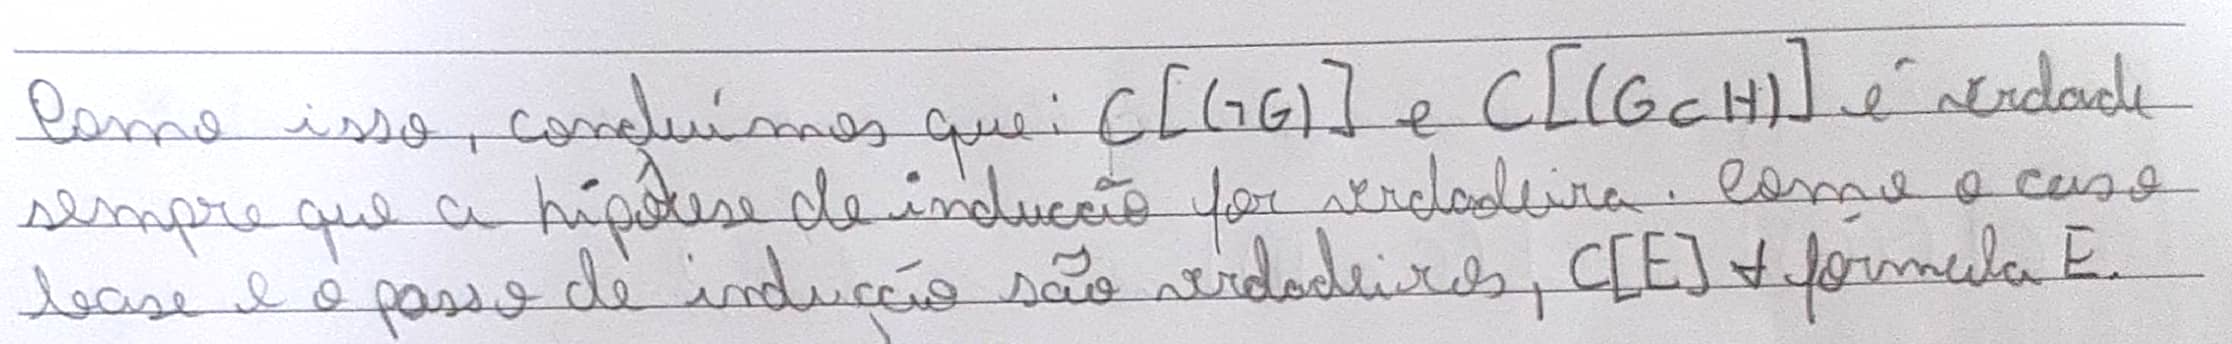 Como isso, concluímos que: C[(¬G)] e C[(G c H)] é verdade
sempre que a hipótese de inducção for verdadeira. Como o caso
base e o passo de indução são verdadeiros, C[E] ∀ fórmula E.